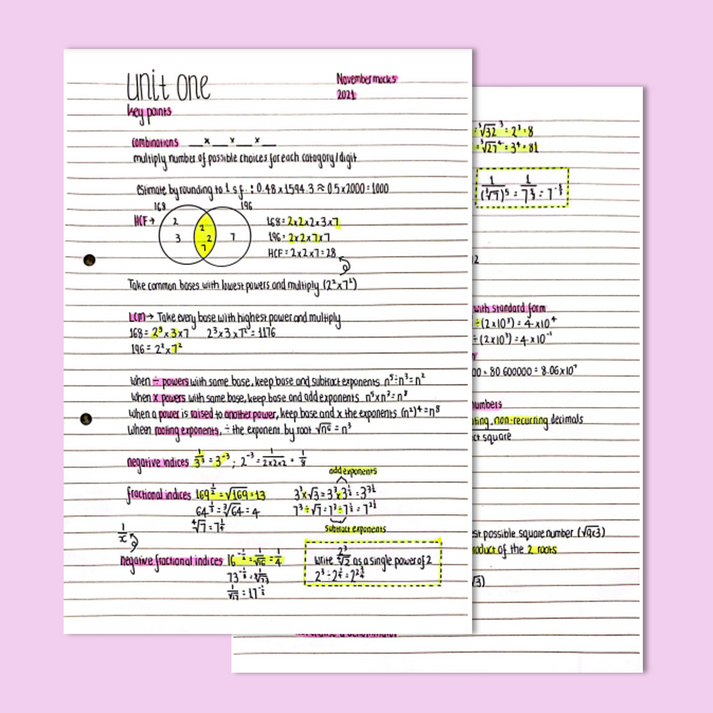 unit one
November mocks
2021
key points
combinations __ x __ x __ x __
multiply number of possible choices for each category/digit
estimate by rounding to 1 s.f. : 0.48 x 1594.3 ≈ 0.5 x 2000 = 1000
168 196
HCF → 2 3 2 2 7 7
168 = 2x2x2x3x7
196 = 2x2x7x7
HCF = 2x2x7 = 28
Take common bases with lowest powers and multiply (2²x7¹)
LCM → Take every base with highest power and multiply
168 = 2³x3x7 2³x3x7² = 1176
196 = 2²x7²
when ÷ powers with same base, keep base and subtract exponents
when x powers with same base, keep base and add exponents
when a power is raised to another power, keep base and x the exponents (n²)⁴ = n⁸
when rooting exponents, ÷ the exponent by root √n⁶ = n³
negative indices 1/3³ = 3⁻³ ; 2⁻³ = 1/(2x2x2) = 1/8
add exponents
fractional indices 169^½ = √169 = 13
64^⅓ = ³√64 = 4
⁴√7 = 7^¼
subtract exponents
1/x
negative fractional indices 16^-½ = 1/√16 = 1/4
write 2³/ as a single power of 2
³√27⁴ = 3⁴ = 81
with standard form
= 80 600000 = 8.06 x 10⁷
non-recurring decimals
st possible square number (√9x3)
oduct of the 2 roots